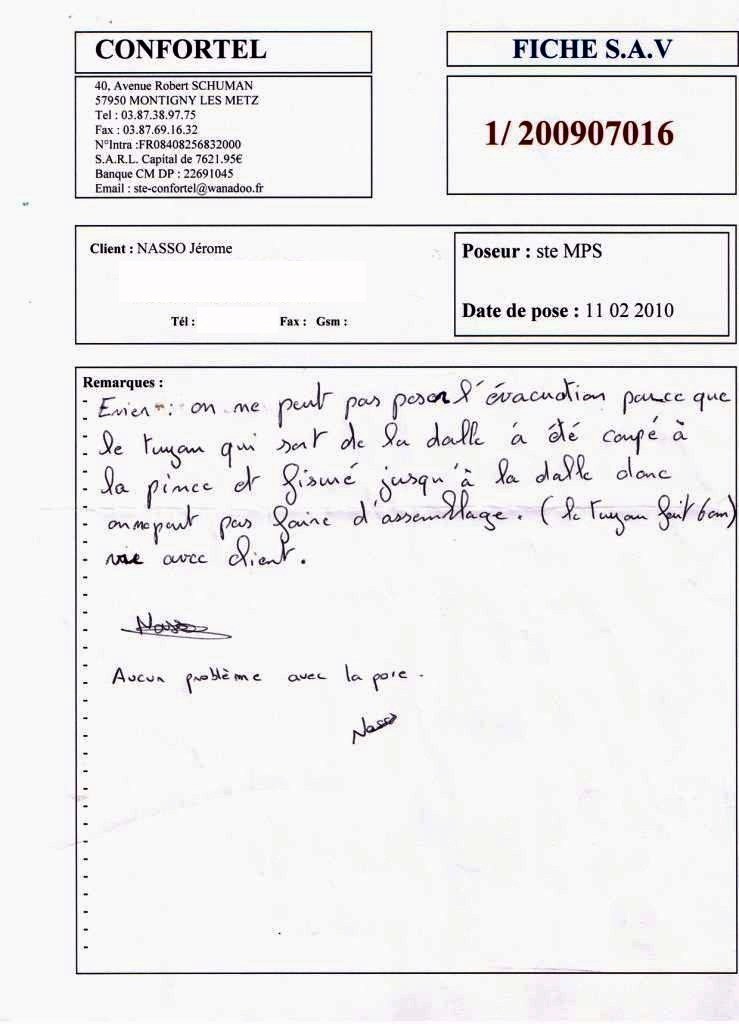 CONFORTEL
FICHE S.A.V
40, Avenue Robert SCHUMAN
57950 MONTIGNY LES METZ
Tel : 03.87.38.97.75
Fax : 03.87.69.16.32
N°Intra :FR08408256832000
S.A.R.L. Capital de 7621.95€
Banque CM DP : 22691045
Email : ste-confortel@wanadoo.fr
1/ 200907016
Client : NASSO Jérome
Tél : Fax : Gsm :
Poseur : ste MPS
Date de pose : 11 02 2010
Remarques :
Evier : on ne peut pas poser l'évacuation parce que
le tuyau qui sort de la dalle à été coupé à
la pince et fisuré jusqu'à la dalle donc
on ne peut pas faire d'assemblage. (le tuyau fait 6cm)
vue avec client.
Nasso
Aucun problème avec la pose.
Nasso